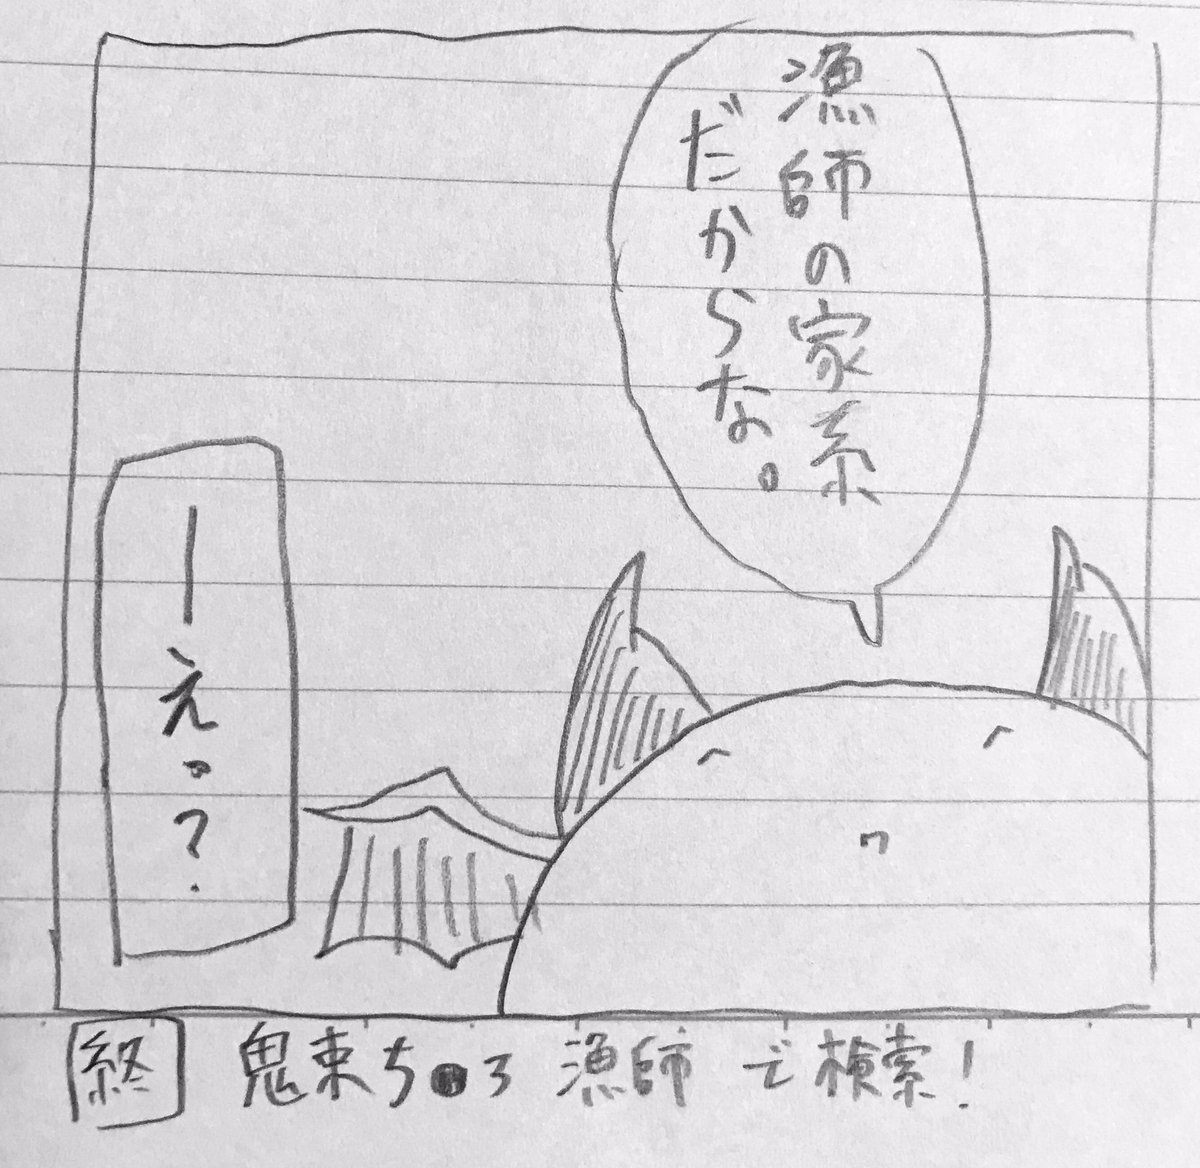 漁師の家系
だからな。
―えっ?
終 鬼束ち●ろ 漁師 で検索!